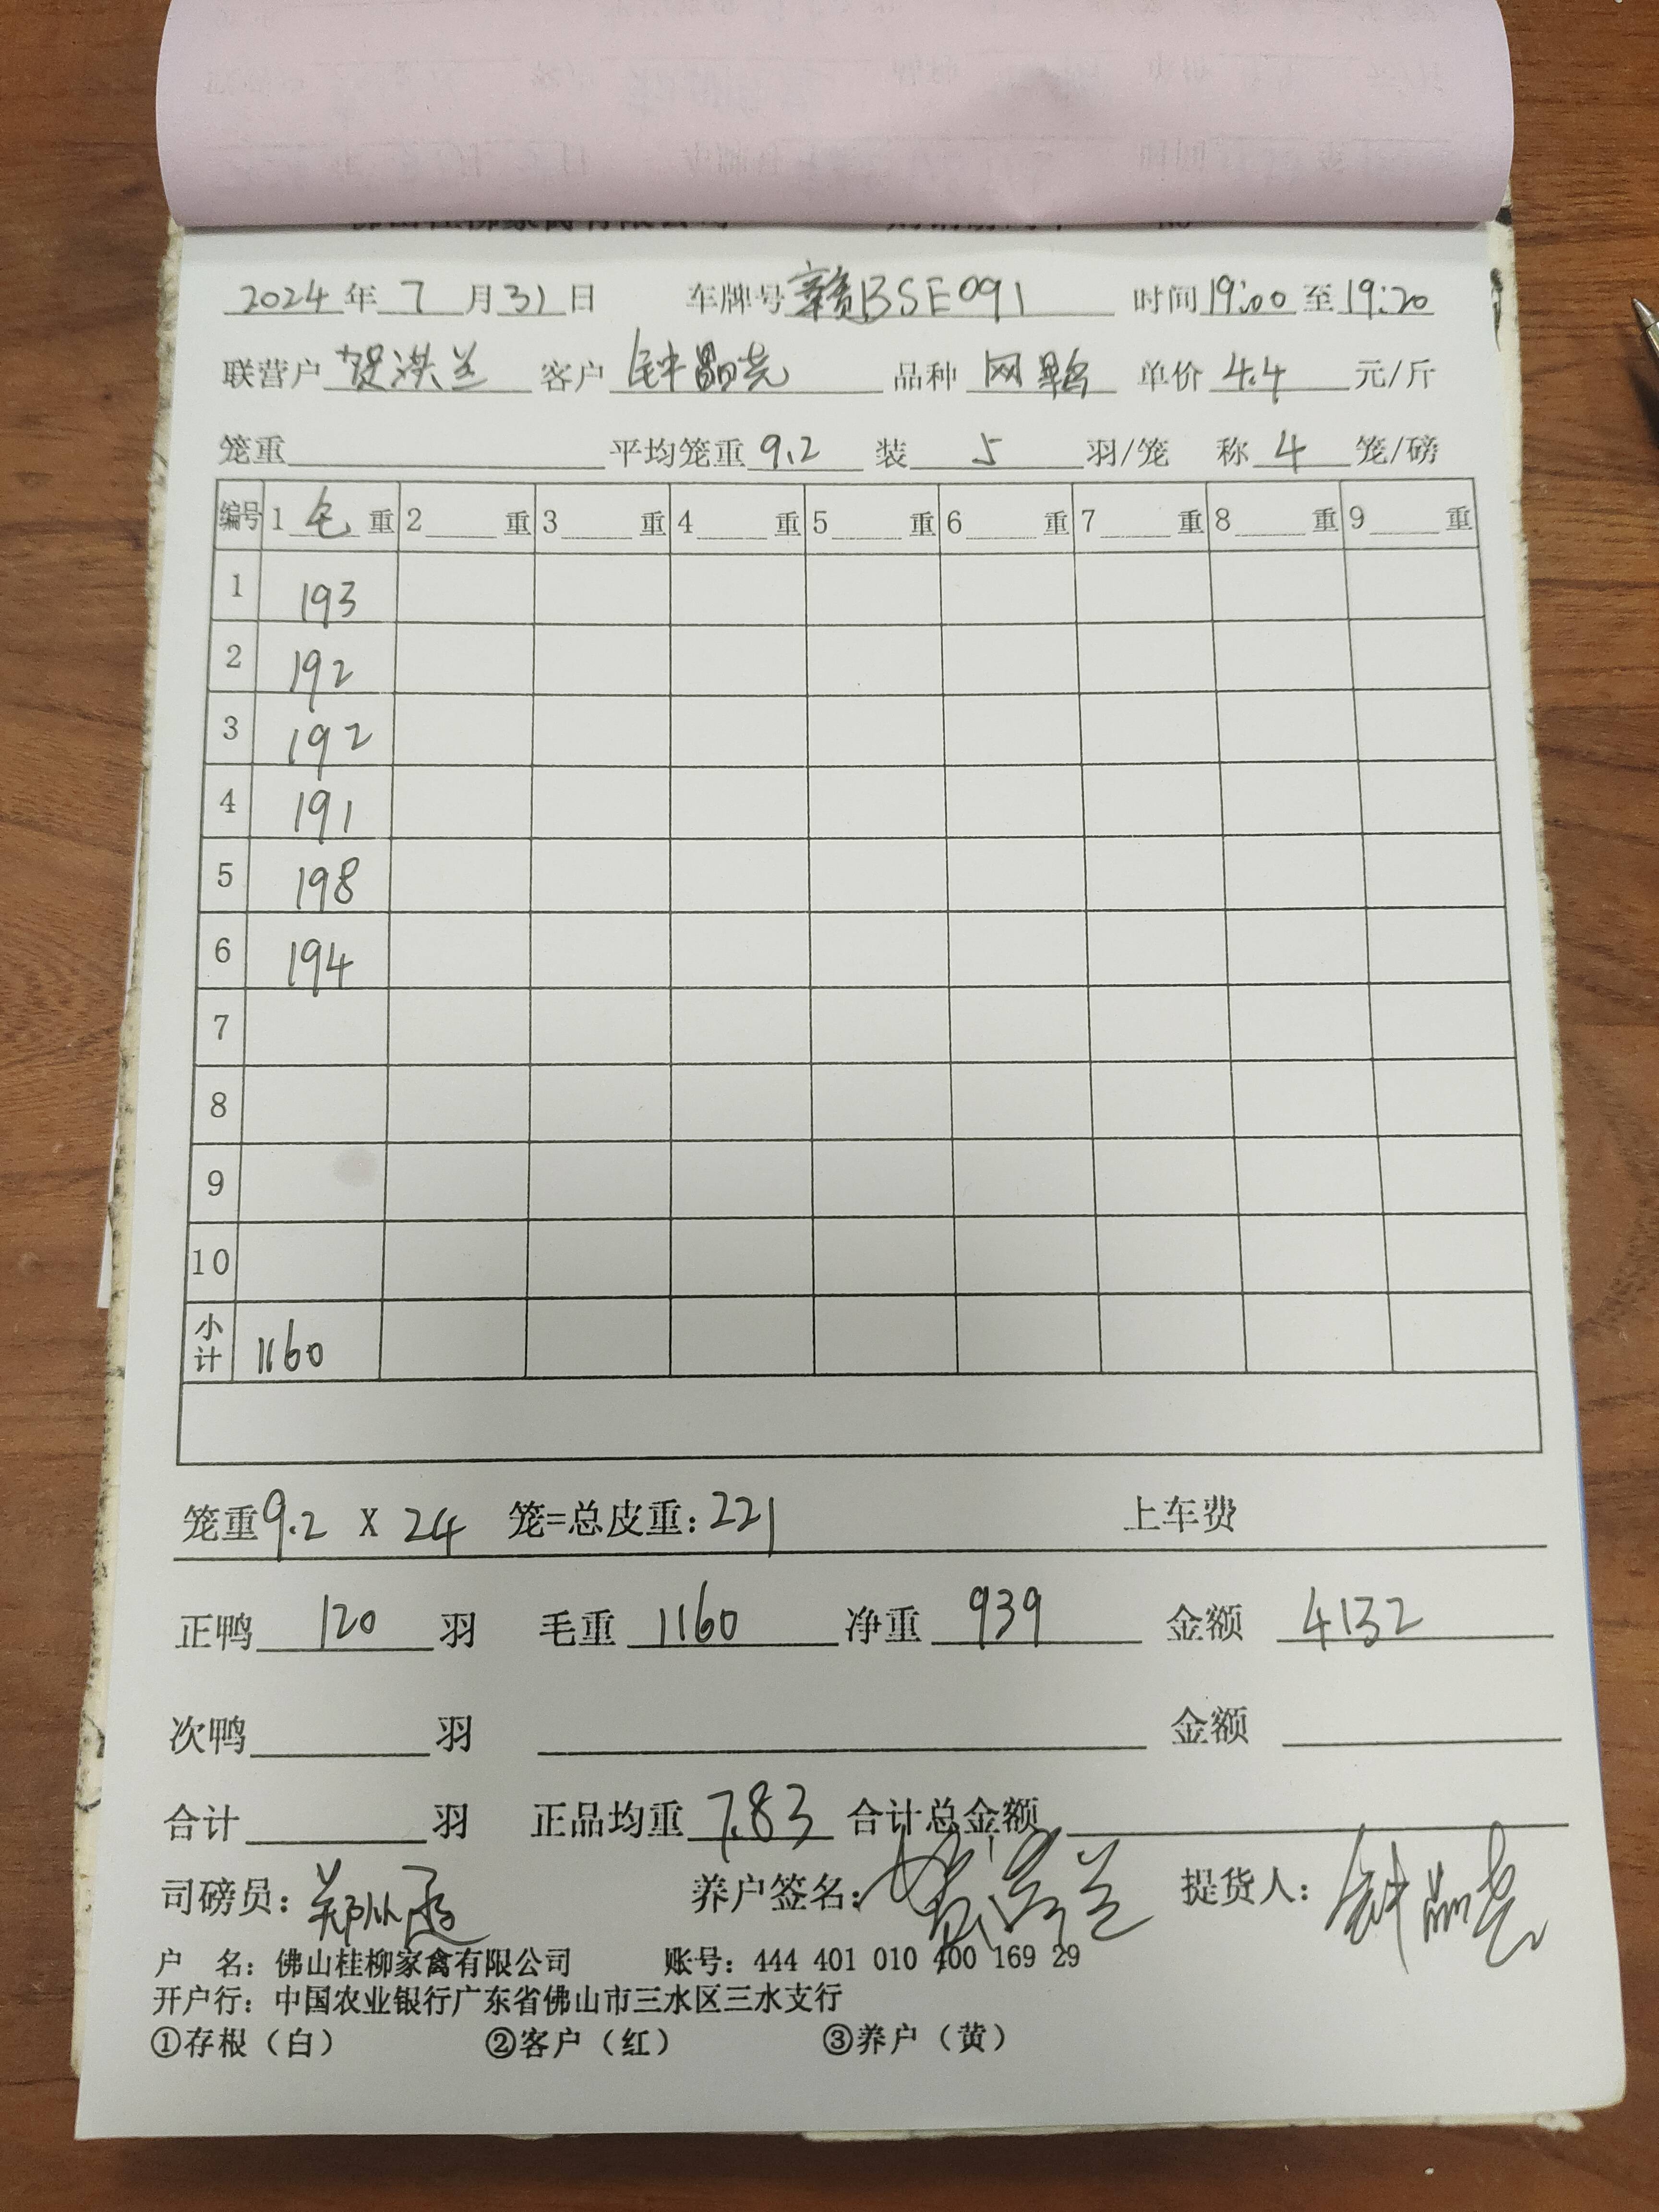 2024 年 7 月 31 日 车牌号 赣BSE091 时间 19:00 至 19:20
联营户 贺洪兰 客户 钟晶亮 品种 网鸭 单价 4.4 元/斤
笼重 平均笼重 9.2 装 5 羽/笼 称 4 笼/磅
编号 1 毛 重 2 重 3 重 4 重 5 重 6 重 7 重 8 重 9 重
1 193
2 192
3 192
4 191
5 198
6 194
7
8
9
10
小计 1160
笼重 9.2 X 24 笼=总皮重: 221 上车费
正鸭 120 羽 毛重 1160 净重 939 金额 4132
次鸭 羽 金额
合计 羽 正品均重 7.83 合计总金额
司磅员: 养户签名: 贺洪兰 提货人: 钟晶亮
户 名: 佛山桂柳家禽有限公司 账号: 444 401 010 400 169 29
开户行: 中国农业银行广东省佛山市三水区三水支行
①存根（白） ②客户（红） ③养户（黄）